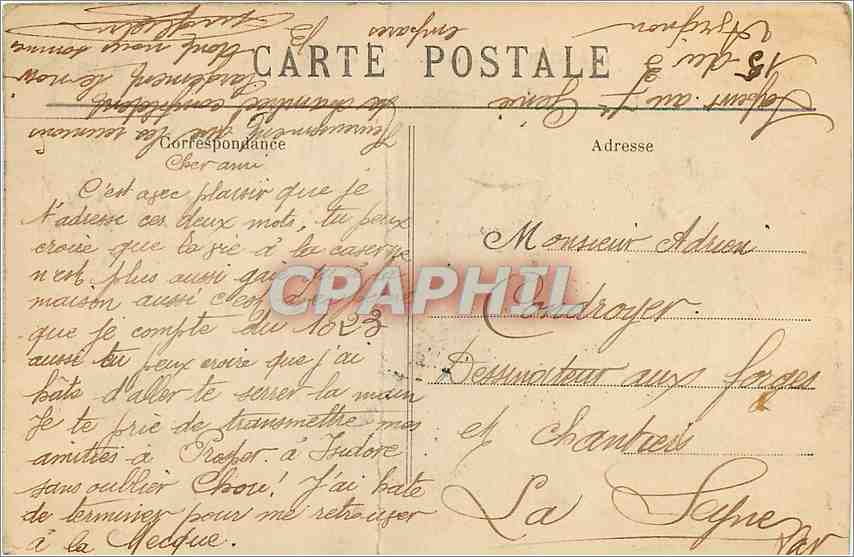 CARTE POSTALE
Correspondance
Cher ami
C'est avec plaisir que je
t'adresse ces deux mots, tu peux
croire que la vie à la caserne
n'est plus aussi
maison aussi c'est avec
que je compte du 1023
aussi tu peux croire que j'ai
hâte d'aller te serrer la main
Je te prie de transmettre mes
amitiés à Prosper à Isidore
sans oublier Chou! J'ai hate
de terminer pour me retrouver
à la Mecque.
Adresse
Monsieur Adrien
Condroyer
Dessinateur aux forges
et chantiers
La Seyne
Var
CPAPHIL
les réunions
dont nous sommes
Sapeur au 7e Génie
15 du 3
Avignon